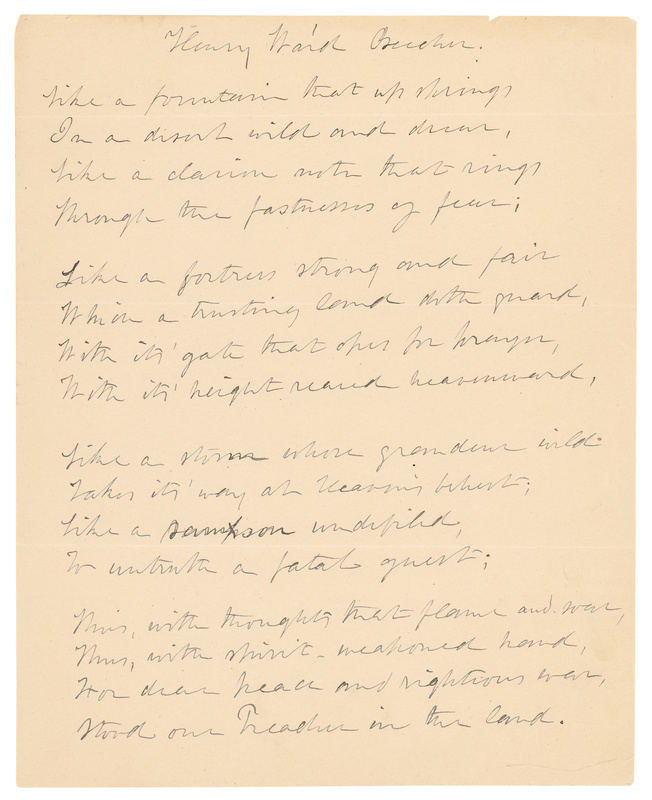 Henry Ward Beecher.
Like a fountain that up springs
In a desert wild and drear,
Like a clarion note that rings
Through the fastnesses of fear;
Like a fortress strong and fair
Which a trusting land doth guard,
With its' gate that opes for prayer,
With its' height reared heavenward,
Like a storm whose grandeur wild
Takes its' way at Heaven's behest;
Like a Samson undefiled,
To untruth a fatal guest;
Thus, with thoughts that flame and soar,
Thus, with spirit-weaponed hand,
For dear peace and righteous war,
Stood our Preacher in the land.